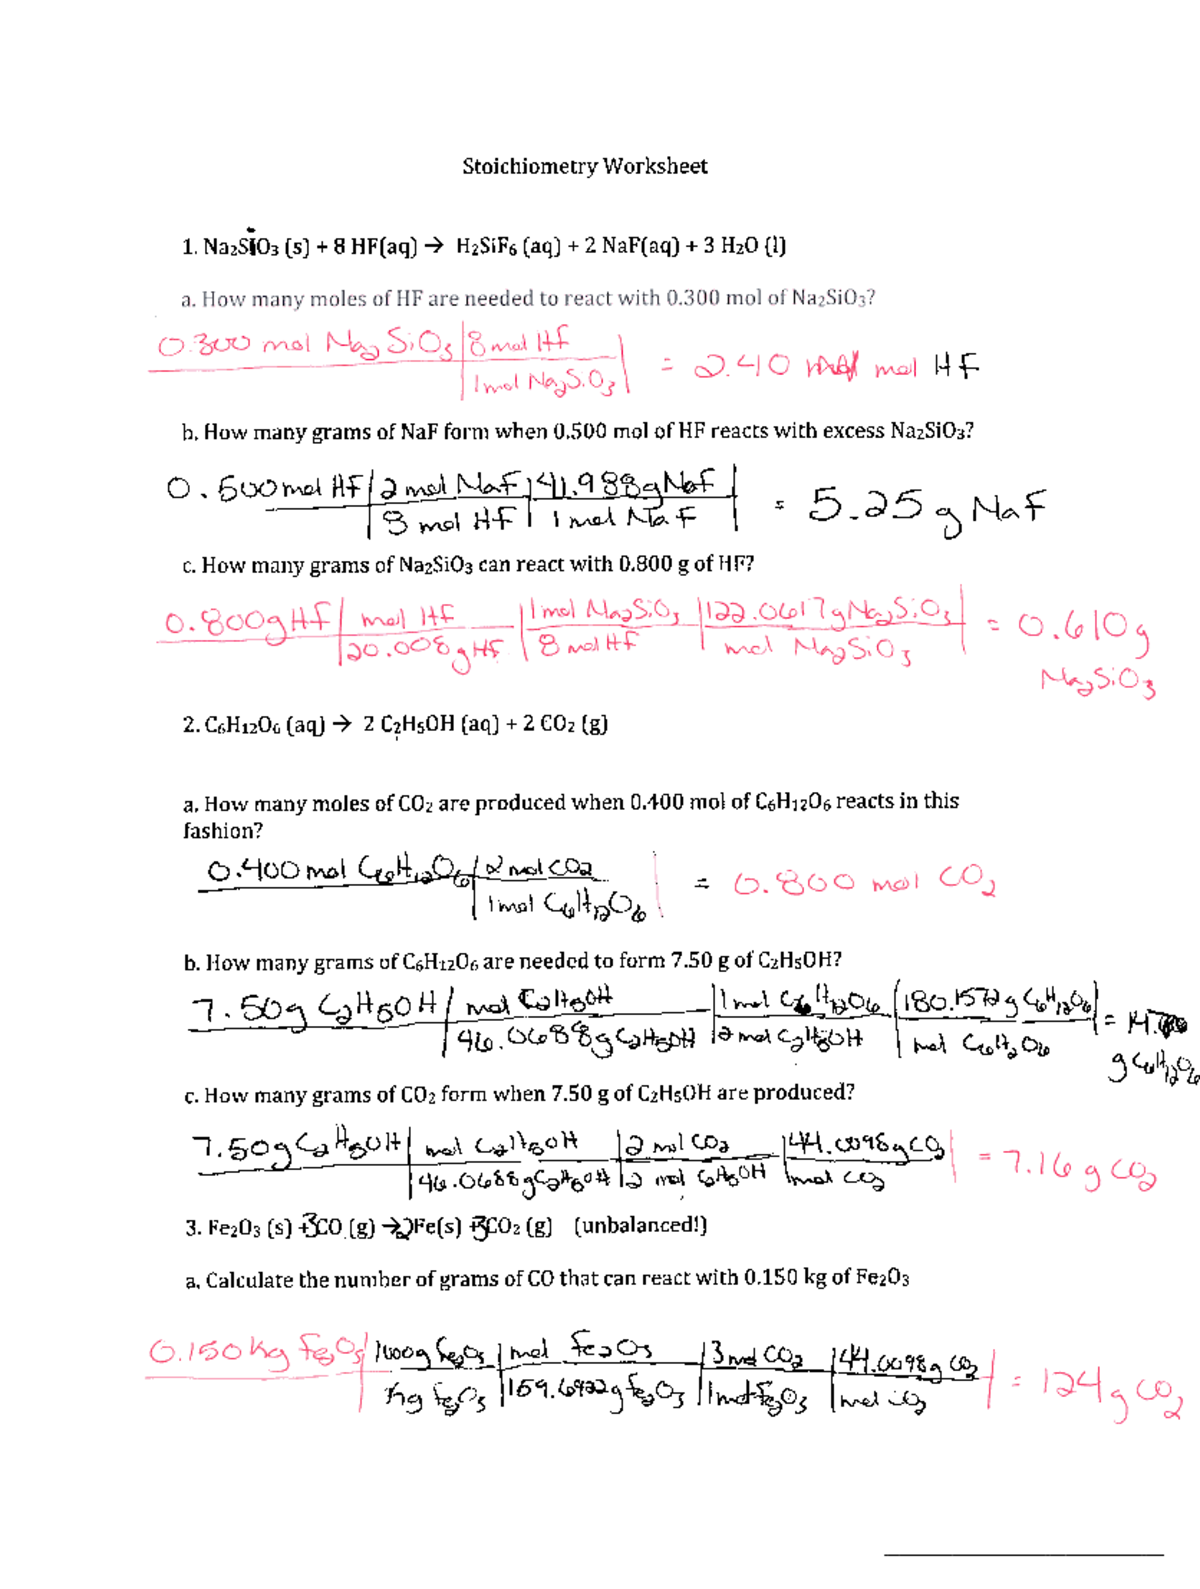 Stoichiometry Worksheet
1. Na2SiO3 (s) + 8 HF(aq) → H2SiF6 (aq) + 2 NaF(aq) + 3 H2O (l)
a. How many moles of HF are needed to react with 0.300 mol of Na2SiO3?
0.300 mol Na2SiO3 | 8 mol HF
1 mol Na2SiO3 | = 2.40 mol HF
b. How many grams of NaF form when 0.500 mol of HF reacts with excess Na2SiO3?
0.500 mol HF | 2 mol NaF | 41.988 g NaF
8 mol HF | 1 mol NaF | = 5.25 g NaF
c. How many grams of Na2SiO3 can react with 0.800 g of HF?
0.800 g HF | mol HF | 1 mol Na2SiO3 | 122.0617 g Na2SiO3 | = 0.610 g
20.008 g HF | 8 mol HF | mol Na2SiO3
Na2SiO3
2. C6H12O6 (aq) → 2 C2H5OH (aq) + 2 CO2 (g)
a. How many moles of CO2 are produced when 0.400 mol of C6H12O6 reacts in this
fashion?
0.400 mol C6H12O6 | 2 mol CO2
1 mol C6H12O6 | = 0.800 mol CO2
b. How many grams of C6H12O6 are needed to form 7.50 g of C2H5OH?
7.50 g C2H5OH | mol C2H5OH | 1 mol C6H12O6 | 180.1572 g C6H12O6 | =
46.0688 g C2H5OH | 2 mol C2H5OH | mol C6H12O6
g C6H12O6
c. How many grams of CO2 form when 7.50 g of C2H5OH are produced?
7.50 g C2H5OH | mol C2H5OH | 2 mol CO2 | 44.0098 g CO2 | = 7.16 g CO2
46.0688 g C2H5OH | 2 mol C2H5OH | mol CO2
3. Fe2O3 (s) + 3CO (g) → 2Fe(s) + 3CO2 (g) (unbalanced!)
a. Calculate the number of grams of CO that can react with 0.150 kg of Fe2O3
0.150 kg Fe2O3 | 1000 g Fe2O3 | mol Fe2O3 | 3 mol CO2 | 44.0098 g CO2 | = 124 g CO2
kg Fe2O3 | 159.6922 g Fe2O3 | 1 mol Fe2O3 | mol CO2